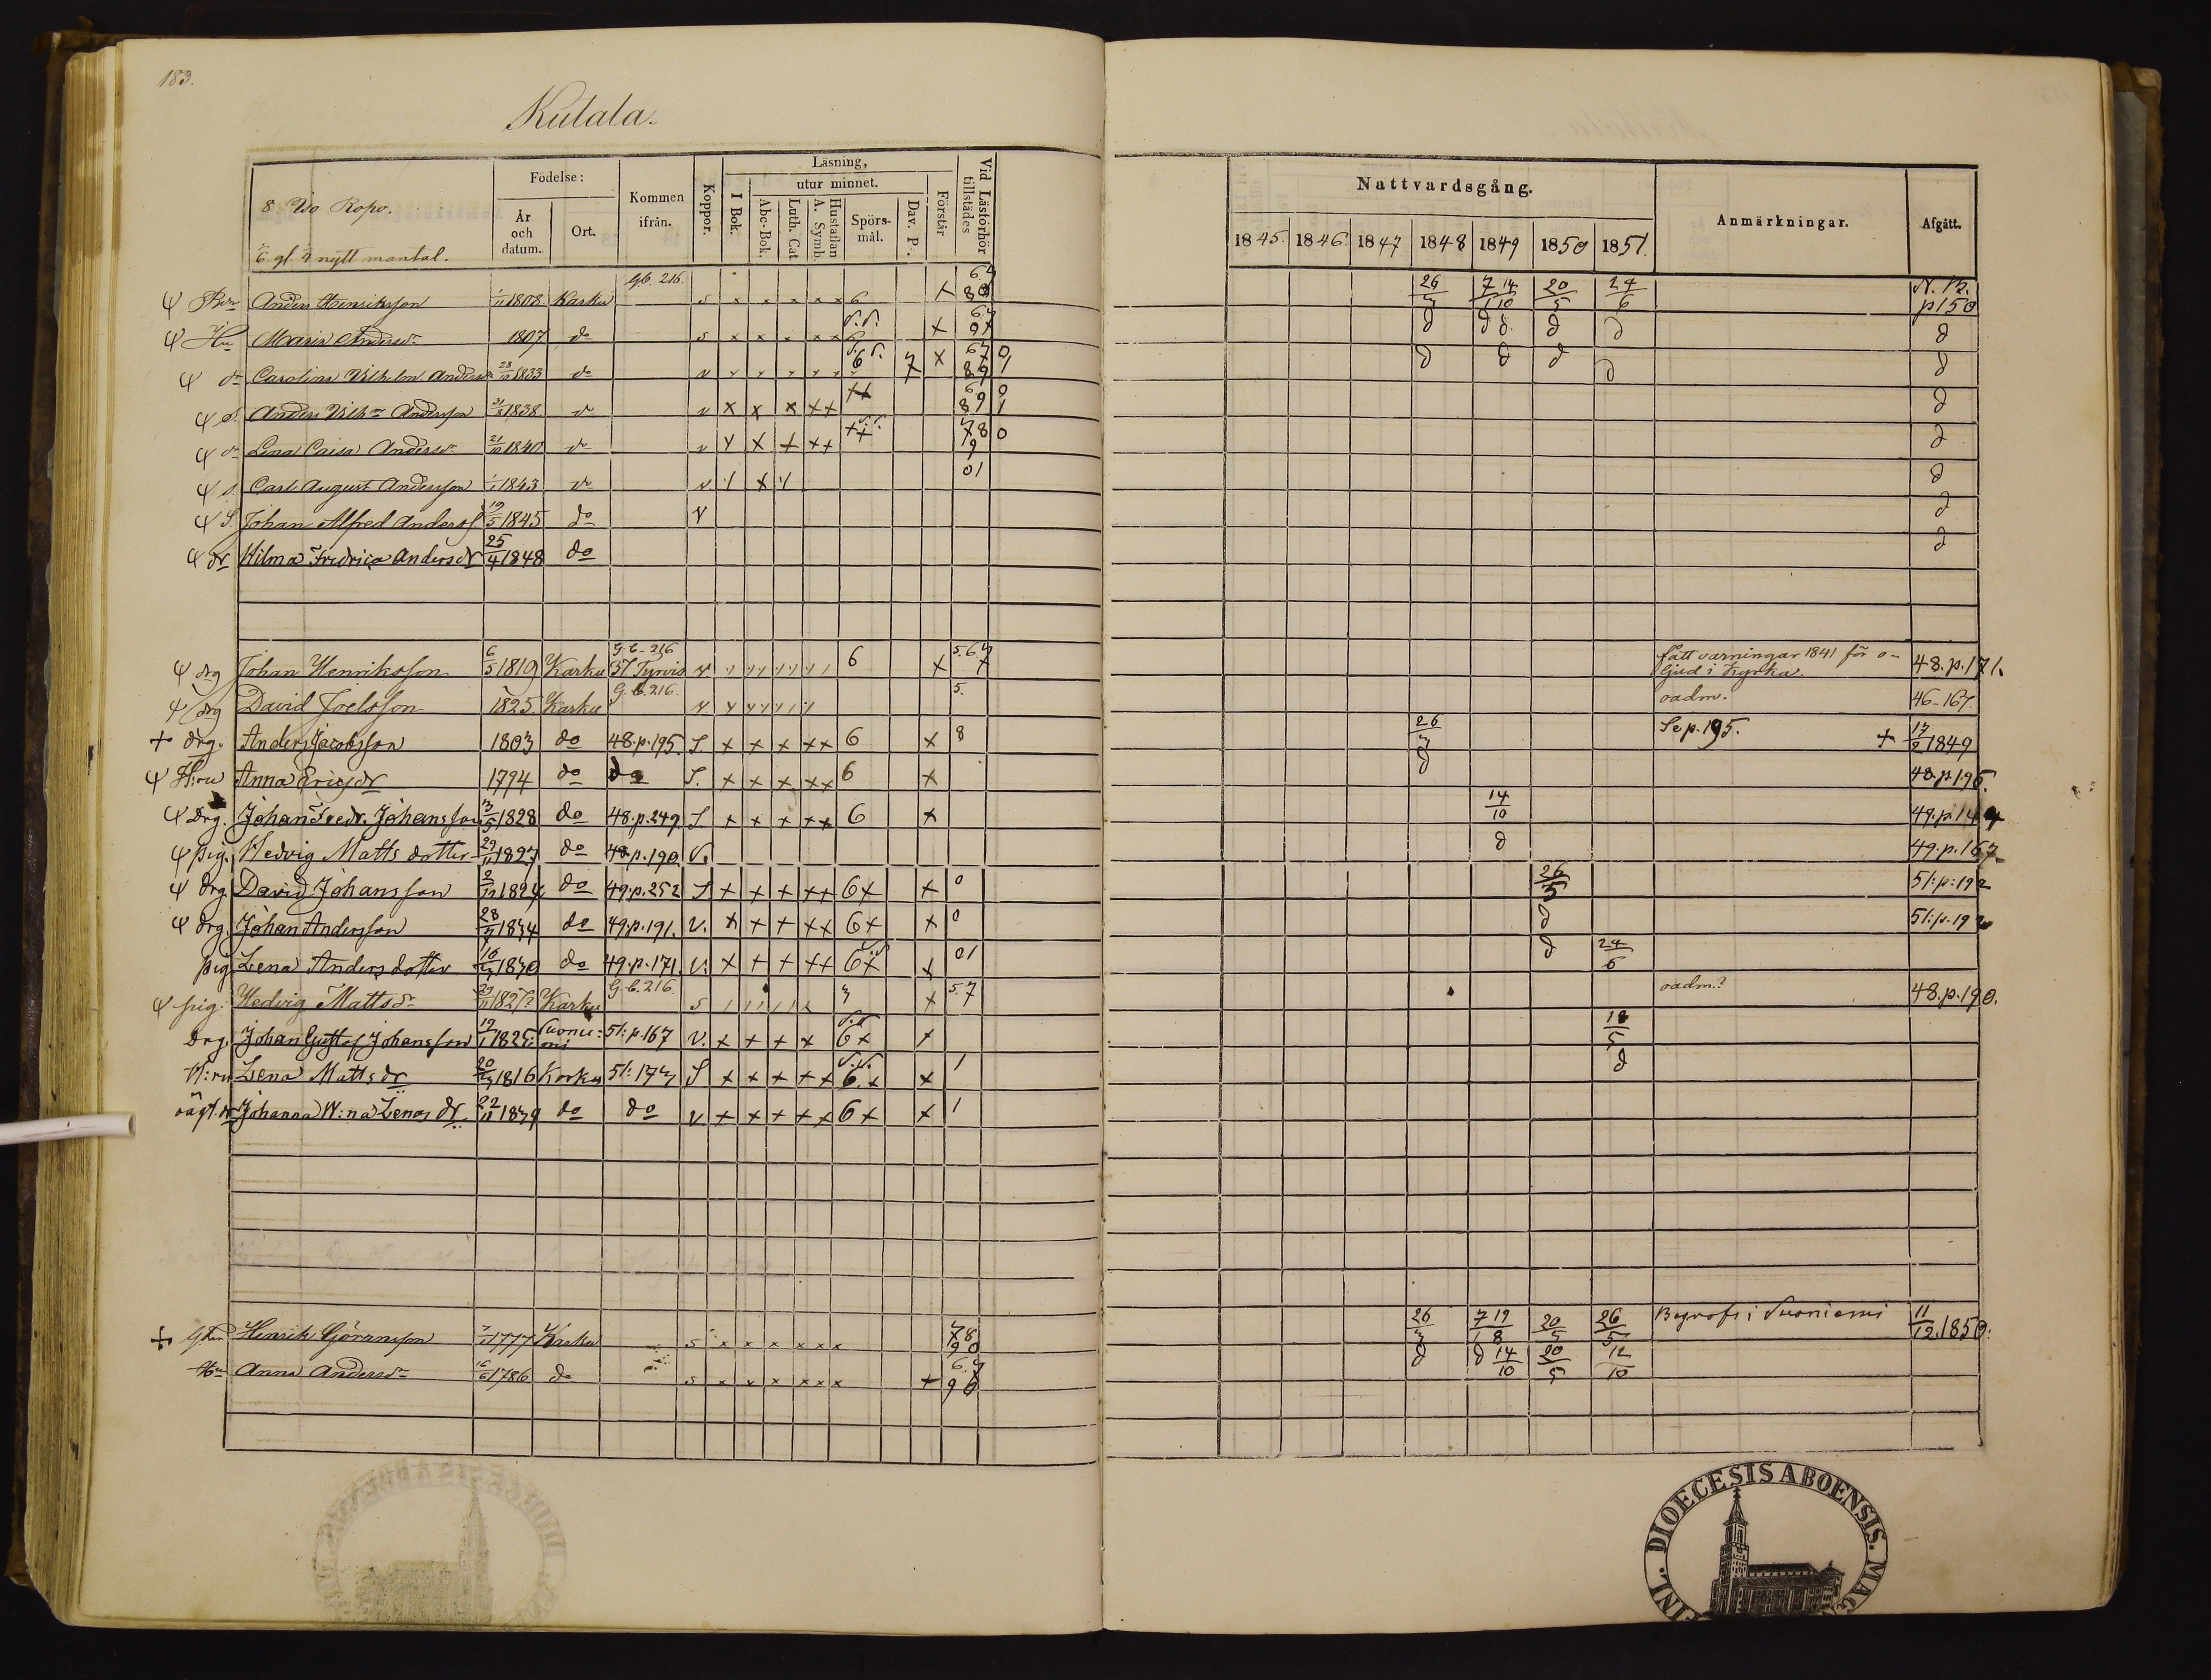 183.
Kutala.
8 Iso Ropo.
gl nytt mantal.
Födelse:
År och datum.
Ort.
Kommen ifrån.
Koppor.
Läsning,
I Bok.
utur minnet.
Abc-Bok.
Luth. Cat
Hustaflan A. Symb.
Spörs-mål.
Dav. P.
Förstår
Vid Läsförhör tillstädes
Nattvardsgång.
1845. 1846. 1847 1848 1849 1850 1851.
Anmärkningar.
Afgått.
G.b. 216.
Anders Henriksson 1808 Karku s x x x x x 6 x 26/3 7/1 14/10 20/5 24/6 N.B. p150
Hu Maria Andersdr 1807 do s x x x x x 6 x d d d d d d
dr Carolina Vilhelm. Andersdr 1833 do v d d d d d
S. Anders Vilhm Andersson 31/8 1838 do v x x x x x d
dr Lena Caisa Andersdr 21/10 1840 do v x x x x x d
S. Carl August Andersson 1843 do v d
S. Johan Alfred Anders 19/5 1845 do v d
dr Wilma Fredrica Andersdr 25/4 1848 do d
drg Johan Henriksson 6/5 1819 Karku G.b. 216 37 Tyrvis 6 x 5.6.7 fått varningar 1841 för o-ljud i Kyrka. 48.p.171.
drg David Joelsson 1825. Karku G.b. 216. 5. oadm. 46-167.
+ drg. Anders Jacobsson 1803 do 48.p.195. S. x x x x x 6 x 8 26/3 Se p.195. + 17/2 1849
H:ru Anna Ericsdr 1794 do do S. x x x x x 6 x d 48.p.196.
Drg. Johan Fredr. Johansson 13/5 1828 do 48.p.249 S x x x x x 6 x 14/10 49.p.144
pig. Hedvig Matts dotter 29/11 1827 do 48.p.190. v. d 49.p.167.
drg. David Johansson 2/12 1824 do 49.p.252 S x x x x x 6 x x 0 26/5 51:p:192
drg. Johan Andersson 28/7 1834 do 49.p.191. v. x x x x x 6 x x 0 d 51:p.192
pig Lena Anders dotter 16/3 1830 do 49.p.171. v. x x x x x 6 x x 01 d 24/6
pig: Hedvig Mattsdr 29/11 1827? Karku G.b. 216. s x 5.7 oadm.? 48.p.190.
Drg. Johan Gustaf Johansson 19/1 1825 Suonie:mi 51:p.167 v. x x x x 6 x x 18/5
H:ru Lena Mattsdr 20/3 1816 Karku 51:173 S x x x x x 6. x x 1 d
oägt. dr Johanna W:na Lenas dr 22/11 1839 do do v x x x x x 6 x x 1
+ Henrik Göransson 1777 Karku s x x x x x x 78 90 26/3 7/1 19/8 20/5 26/5 Begrafs i Suoniemi 11/12.1850.
Hu Anna Andersdr 16/6 1786 do s x x x x x x x d d 14/10 20/5 12/10
FINL. DIOECESIS ABOENSIS. MAG